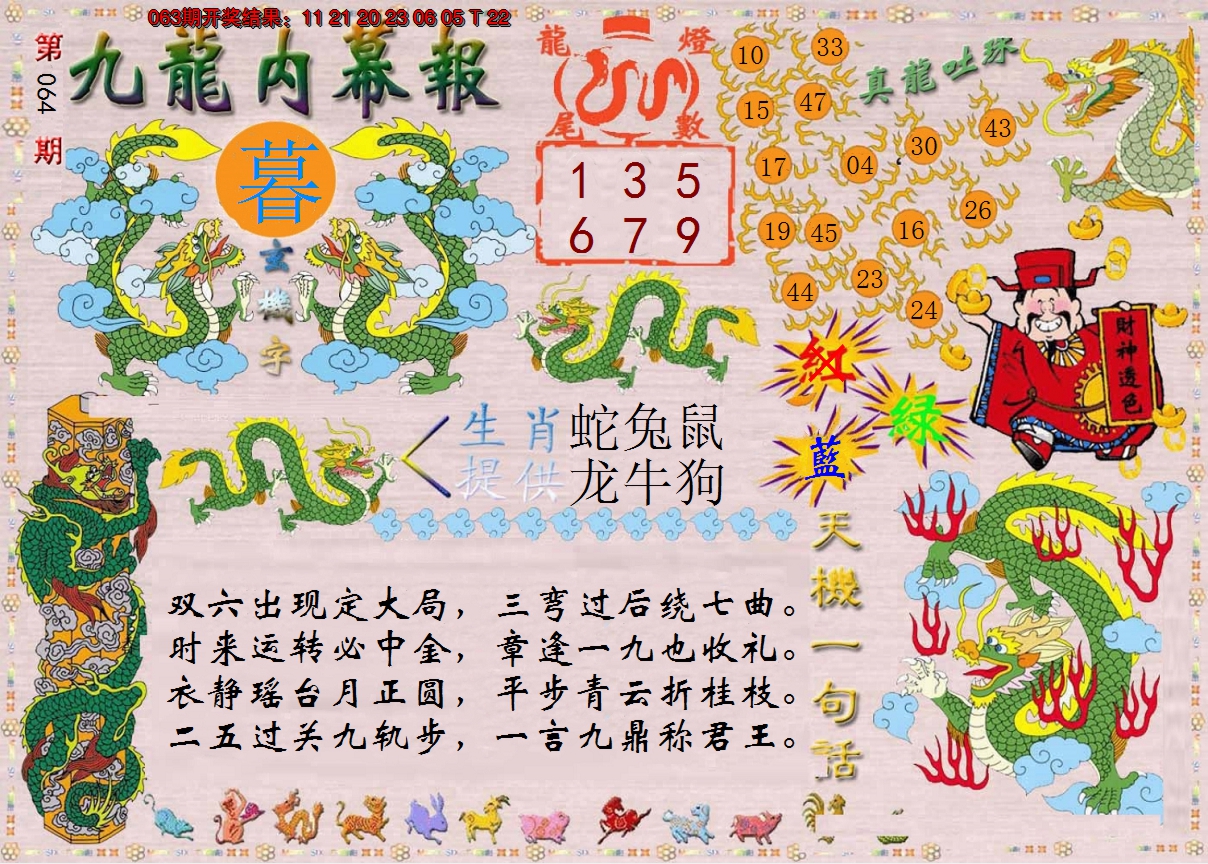 063期开奖结果：11 21 20 23 06 05 T 22
第064期
九龍内幕報
暮
玄機字
龍燈尾數
1 3 5
6 7 9
真龍吐珠
10 33
15 47
17 04 30 43
19 45 16 26
44 23 24
財神透色
紅
綠
藍
生肖提供
蛇兔鼠
龙牛狗
天機一句話
双六出现定大局，三弯过后绕七曲。
时来运转必中金，章逢一九也收礼。
衣静瑶台月正圆，平步青云折桂枝。
二五过关九轨步，一言九鼎称君王。